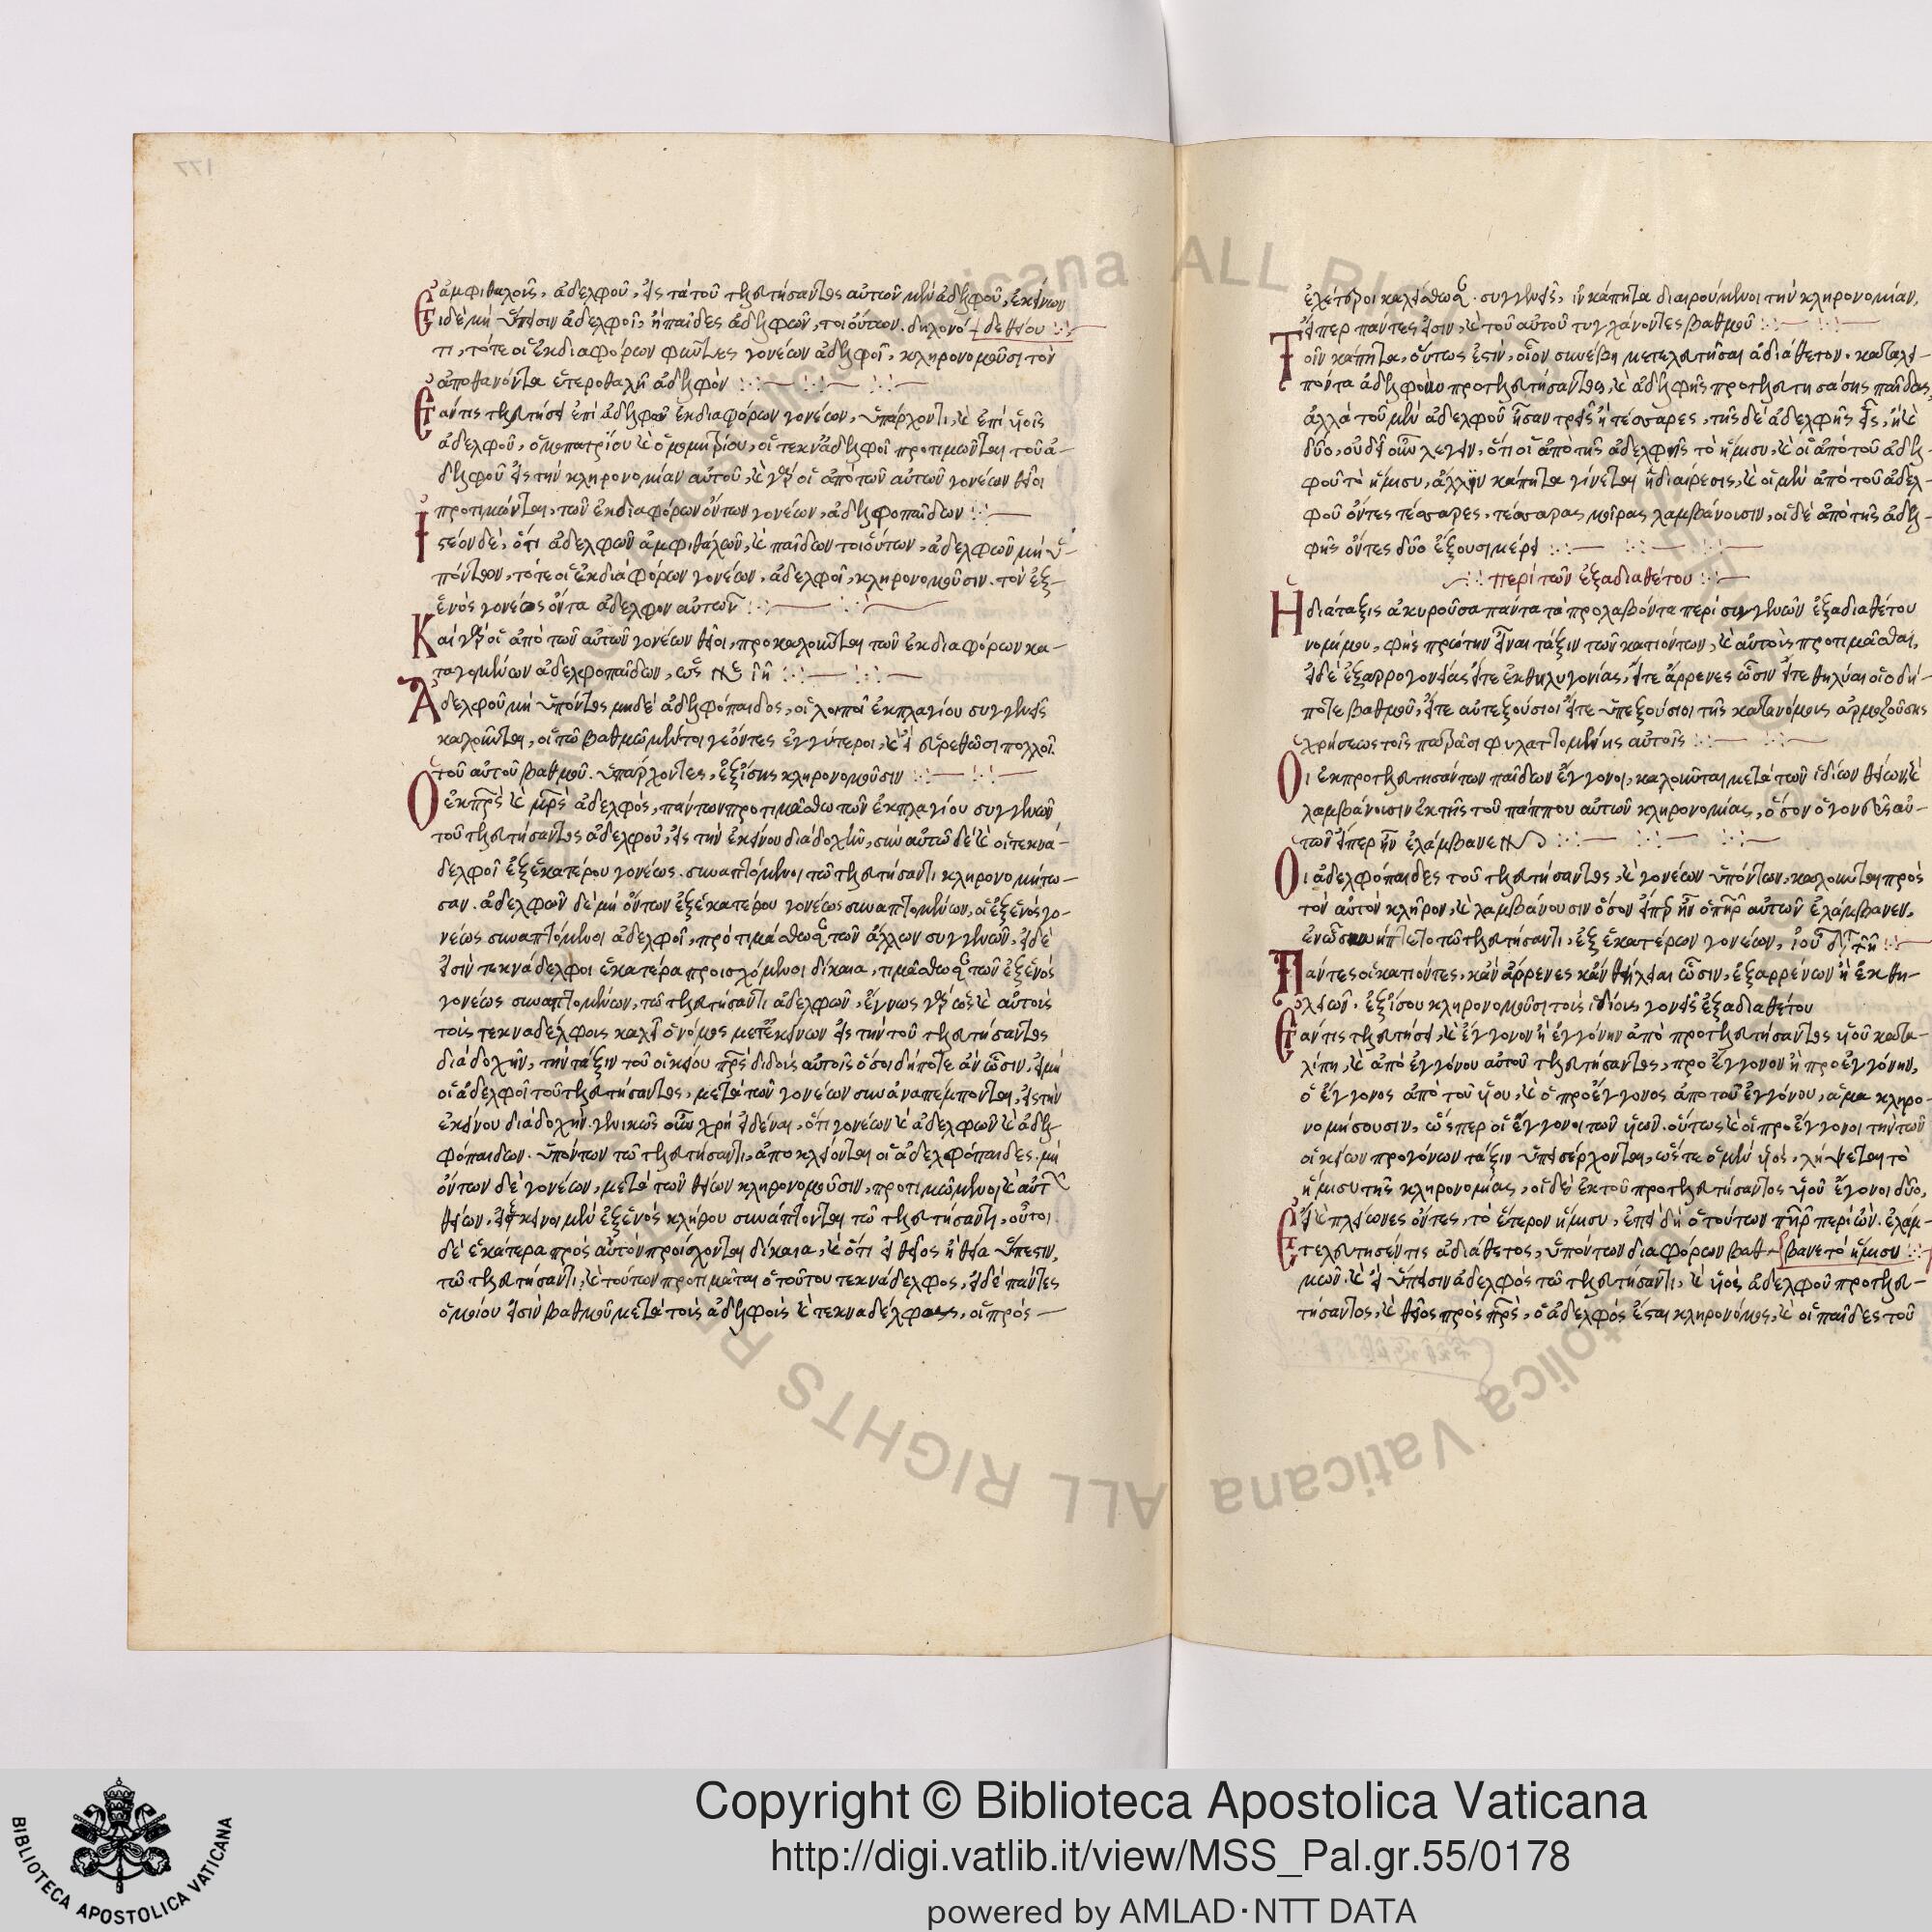 177
ἀμφιθαλοῦς, ἀδελφοῦ, εἰς τὰ τοῦ τελευτήσαντος αὐτῶν μὲν ἀδελφοῦ, ἐκείνων
Εἰ δὲ μὴ ὕπεισιν ἀδελφοὶ, ἢ παῖδες ἀδελφῶν, τοιούτων. δηλονό δὲ θείου
τι, τότε οἱ ἐκ διαφόρων γονέων ἀδελφοὶ, κληρονομοῦσι τὸν
ἀποθανόντα ἑτεροθαλῆ ἀδελφὸν
Ἐάν τις τελευτήσει ἐπὶ ἀδελφῶ ἐκ διαφόρων γονέων, ὑπάρχοντι, καὶ ἐπὶ υἱοῖς
ἀδελφοῦ, ὁμοπατρίου καὶ ὁμομητρίου, οἱ τεκνάδελφοι προτιμῶνται τοῦ ἀ-
δελφοῦ εἰς τὴν κληρονομίαν αὐτοῦ, καὶ γὰρ οἱ ἀπὸ τῶν αὐτῶν γονέων θεῖοι
προτιμῶνται, τῶν ἐκ διαφόρων ὄντων γονέων, ἀδελφοπαίδων
Ἰστέον δὲ, ὅτι ἀδελφῶν ἀμφιθαλῶν, καὶ παίδων τοιούτων, ἀδελφῶν μὴ ὑ-
πόντων, τότε οἱ ἐκ διαφόρων γονέων, ἀδελφοὶ, κληρονομοῦσιν. τὸν ἐξ-
ἑνὸς γονέως ὄντα ἀδελφὸν αὐτῶν
Καὶ γὰρ οἱ ἀπὸ τῶν αὐτῶν γονέων θεῖοι, προκαλοῦνται τῶν ἐκ διαφόρων κα-
ταγομένων ἀδελφοπαίδων, ὡς
Ἀδελφοῦ μὴ ὑπόντος μηδὲ ἀδελφόπαιδος, οἱ λοιποὶ ἐκ πλαγίου συγγενεῖς
καλοῦνται, οἱ τῶ βαθμῶ μέντοι γε ὄντες ἐγγύτεροι, καὶ εἰ εὑρεθῶσι πολλοὶ
τοῦ αὐτοῦ βαθμοῦ. ὑπάρχοντες, ἐξίσης κληρονομοῦσιν
Ὁ ἐκ πρς καὶ μρς ἀδελφός, πάντων προτιμάσθω τῶν ἐκ πλαγίου συγγενῶν
τοῦ τελευτήσαντος ἀδελφοῦ, εἰς τὴν ἐκείνου διαδοχὴν, σὺν αὐτῶ δὲ καὶ οἱ τεκνά-
δελφοι ἐξ ἑκατέρου γονέως. συναπτόμενοι τῶ τελευτήσαντι κληρονομήτω-
σαν. ἀδελφῶν δὲ μὴ ὄντων ἐξ ἑκατέρου γονέως συναπτομένων, οἱ ἐξ ἑνὸς γο-
νέως συναπτόμενοι ἀδελφοὶ, προτιμάσθωσαν τῶν ἄλλων συγγενῶν, εἰ δὲ
εἰσὶν τεκνάδελφοι ἑκατέρα προισχόμενοι δίκαια, τιμάσθωσαν τῶν ἐξ ἑνὸς
γονέως συναπτομένων, τῶ τελευτήσαντι ἀδελφῶν, ἔγνως γὰρ ὡς καὶ αὐτοὺς
τοὺς τεκναδέλφους καλεῖ ὁ νόμος μετ ἐκείνων εἰς τὴν τοῦ τελευτήσαντος
διαδοχὴν, τὴν τάξιν τοῦ οἰκείου πρς διδοὺς αὐτοῖς ὅσοι δήποτε ἂν ὦσιν, εἰ μὴ
οἱ ἀδελφοὶ τοῦ τελευτήσαντος, μετὰ τῶν γονέων συναναπέμπονται, εἰς τὴν
ἐκείνου διαδοχὴν. γενικῶς οὖν χρὴ εἰδέναι, ὅτι γονέων καὶ ἀδελφῶν καὶ ἀδελ-
φόπαιδων. ὑπόντων τῶ τελευτήσαντι, ἀποκλείονται οἱ ἀδελφόπαιδες. μὴ
ὄντων δὲ γονέων, μετὰ τῶν θείων κληρονομοῦσιν, προτιμώμενοι καὶ αὐτ
θείων, ἐκεῖνοι μὲν ἐξ ἑνὸς κλήρου συνάπτονται τῶ τελευτήσαντι, οὗτοι
δὲ ἑκάτερα πρὸς αὐτὸν προίσχονται δίκαια, καὶ ὅτι εἰ θεῖος ἢ θεία ὕπεστιν,
τῶ τελευτήσαντι, καὶ τούτων προτιμᾶται ὁ τούτου τεκνάδελφος, εἰ δὲ πάντες
ὁμοίου εἰσὶν βαθμοῦ μετὰ τοὺς ἀδελφοὺς καὶ τεκναδέλφους, οἱ πρὸς
ἑλέτεροι καλείσθωσαν. συγγενεῖς, ἰν κάπητα διαιρούμενοι τὴν κληρονομίαν,
εἴπερ πάντες εἰσιν, καὶ τοῦ αὐτοῦ τυγχάνοντες βαθμοῦ
Τὸ ἰν κάπητα, οὕτως ἐστίν, οἷον συνέβη με τελευτῆσαι ἀδιάθετον. καταλει-
πόντα ἀδελφοῦ προτελευτήσαντος, καὶ ἀδελφῆς προτελευτησάσης παῖδας,
ἀλλὰ τοῦ μὲν ἀδελφοῦ ἦσαν τρεῖς ἢ τέσσαρες, τῆς δὲ ἀδελφῆς εἷς, ἢ καὶ
δύο, οὐ δεῖ οὖν λέγειν, ὅτι οἱ ἀπὸ τῆς ἀδελφῆς τὸ ἥμισυ, καὶ οἱ ἀπὸ τοῦ ἀδελ-
φοῦ τὸ ἥμισυ, ἀλλ ἰν κάπητα γίνεται ἡ διαίρεσις, καὶ οἱ μὲν ἀπὸ τοῦ ἀδελ-
φοῦ ὄντες τέσσαρες, τέσσαρας μοίρας λαμβάνουσιν, οἱ δὲ ἀπὸ τῆς ἀδελ-
φῆς ὄντες δύο ἕξουσι μέρει
περὶ τῶν ἐξ ἀδιαθέτου
Ἡ διάταξις ἀκυροῦσα πάντα τὰ προλαβόντα περὶ συγγενῶν ἐξ ἀδιαθέτου
νομίμου, φησὶ πρώτην εἶναι τάξιν τῶν κατιόντων, καὶ αὐτοὺς προτιμᾶσθαι,
εἰ δὲ ἐξ ἀρρογονίας εἴτε ἐκ θηλυγονίας, εἴτε ἄρρενες ὦσιν εἴτε θηλύαι οἱ ὁδή-
ποτε βαθμοῦ, εἴτε αὐτεξούσιοι εἴτε ὑπεξούσιοι τῆς κατὰ νόμους ἁρμοζούσης
χρήσεως τοῖς πᾶσι φυλαττομένης αὐτοῖς
Οἱ ἐκ προτελευτησάντων παίδων ἔγγονοι, καλοῦνται μετὰ τῶν ἰδίων θείων καὶ
λαμβάνουσιν ἐκ τῆς τοῦ πάππου αὐτῶν κληρονομίας, ὅσον ὁ γονεὺς αὐ-
τῶν εἴπερ ἦν ἐλάμβανεν
Οἱ ἀδελφόπαιδες τοῦ τελευτήσαντος, καὶ γονέων ὑπόντων, καλοῦνται πρὸς
τὸν αὐτὸν κλῆρον, καὶ λαμβάνουσιν ὅσον εἴπερ ἦν ὁ πηρ αὐτῶν ἐλάμβανεν,
ἐν ᾧ συνήπτετο τῶ τελευτήσαντι, ἐξ ἑκατέρων γονέων,
Πάντες οἱ κατιόντες, κἂν ἄρρενες κἂν θήλειαι ὦσιν, ἐξ ἀρρένων ἢ ἐκ θη-
λειῶν. ἐξίσου κληρονομοῦσι τοὺς ἰδίους γονεῖς ἐξ ἀδιαθέτου
Ἐάν τις τελευτήσει, καὶ ἔγγονον ἢ ἐγγόνην ἀπὸ προτελευτήσαντος υἱοῦ κατα-
λίπη, καὶ ἀπὸ ἐγγόνου αὐτοῦ τελευτήσαντος, προέγγονον ἢ προεγγόνην,
ὁ ἔγγονος ἀπὸ τοῦ υἱοῦ, καὶ ὁ προέγγονος ἀπὸ τοῦ ἐγγόνου, ἅμα κληρο-
νομήσουσιν, ὥσπερ οἱ ἔγγονοι τῶν υἱῶν. οὕτως καὶ οἱ προέγγονοι τὴν τῶν
οἰκείων προγόνων τάξιν ὑπεισέρχονται, ὥστε ὁ μὲν υἱὸς, λήψεται τὸ
ἥμισυ τῆς κληρονομίας, οἱ δὲ ἐκ τοῦ προτελευτήσαντος υἱοῦ ἔγονοι δύο,
εἰ καὶ πλείωνες ὄντες, τὸ ἕτερον ἥμισυ, ἐπειδὴ ὁ τούτων πηρ περιὼν. ἐλάμ-
Ἐ τελευτήσει τις ἀδιάθετος, ὑπόντων διαφόρων βαθ βανε τὸ ἥμισυ
μῶν. καὶ εἰ ὕπεισιν ἀδελφὸς τῶ τελευτήσαντι, καὶ υἱὸς ἀδελφοῦ προτελευ-
τήσαντος, καὶ θεῖος πρὸς πρς, ὁ ἀδελφὸς ἔσται κληρονόμος, καὶ οἱ παῖδες τοῦ
Copyright © Biblioteca Apostolica Vaticana
http://digi.vatlib.it/view/MSS_Pal.gr.55/0178
powered by AMLAD·NTT DATA
BIBLIOTECA APOSTOLICA VATICANA